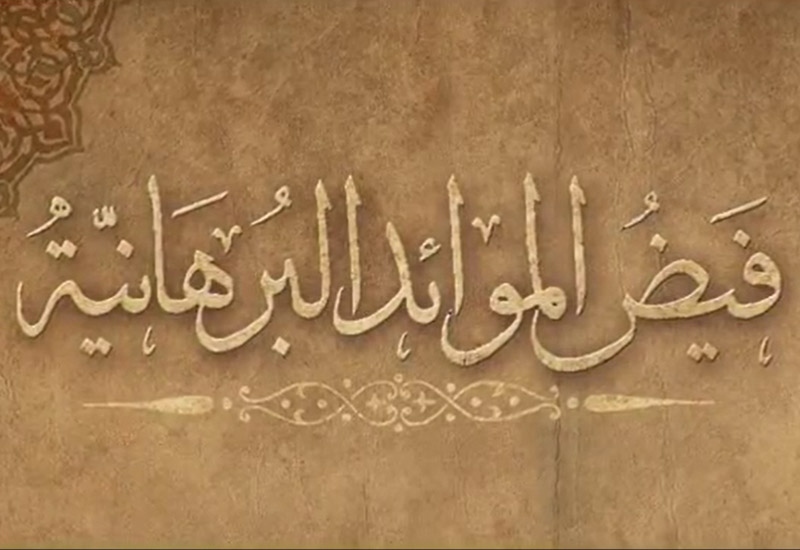 فيضُ الموائد البُرهَانيّةُ